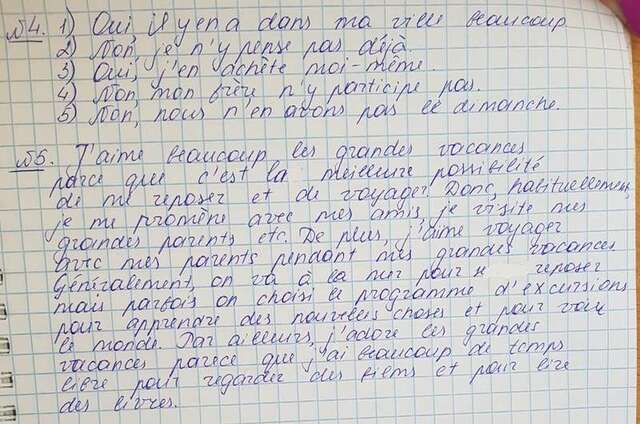 №4. 1) Oui, il y en a dans ma ville beaucoup
2) Non, je n'y pense pas déjà.
3) Oui, j'en achète moi-même.
4) Non, mon frère n'y participe pas.
5) Non, nous n'en avons pas le dimanche.
№5. J'aime beaucoup les grandes vacances
parce que c'est la meilleure possibilité
de me reposer et de voyager. Donc, habituellement,
je me promène avec mes amis, je visite mes
grandes parents etc. De plus, j'aime voyager
avec mes parents pendant mes grandes vacances
Généralement, on va à la mer pour reposer
mais parfois on choisi le programme d'excursions
pour apprendre des nouvelles choses et pour voir
le monde. Par ailleurs, j'adore les grandes
vacances parece que j'ai beaucoup de temps
libre pour regarder des films et pour lire
des livres.